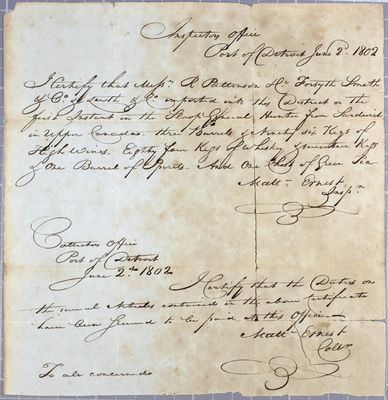 Inspectors Office
Port of Detroit June 2d. 1802
I Certify that Messrs. R Pattinson & Co. Forsyth Smith
& Co. & Smith & Co. imported into this District on the
first Instant in the Sloop General Hunter from Sandwich
in Upper Canada - three Barrels & Ninety six Kegs of
High Wines. Eighty four Kegs of Whisky Kegs
& One Barrel of Spirits - And One Chest of Green Tea
Matt - Ernest
Inspr.
Collectors Office
Port of Detroit
June 2d. 1802
I Certify that the Duties on
the several Articles contained in the above Certificate
have been secured to be paid at this Office -
Matt - Ernest
Collr.
To all concerned